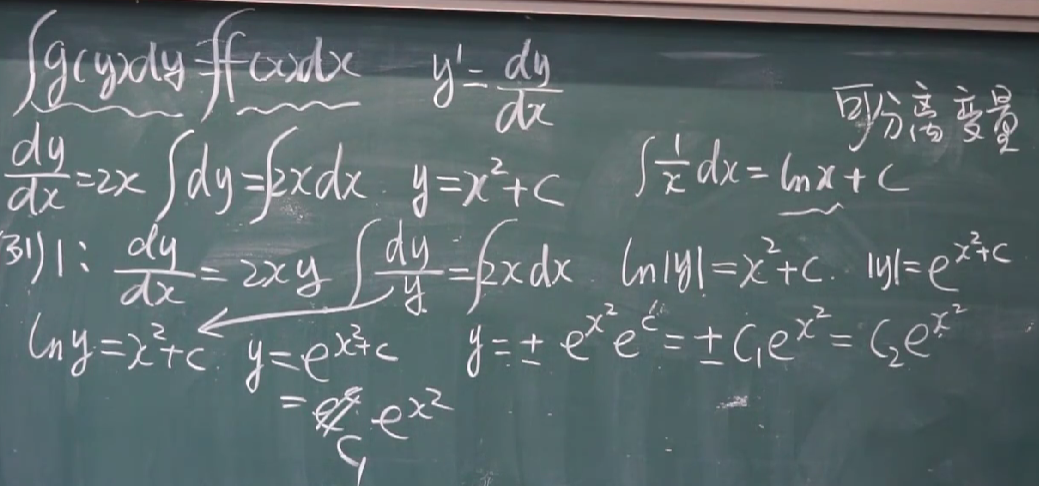 ∫g(y)dy=∫f(x)dx y'=dy/dx
可分离变量
dy/dx=2x ∫dy=∫2xdx. y=x²+c ∫1/x dx=lnx+c
例1: dy/dx=2xy ∫dy/y=∫2xdx ln|y|=x²+c. |y|=e^(x²+c)
lny=x²+c. y=e^(x²+c) y=±e^(x²)e^c=±C₁e^(x²)=C₂e^(x²)
=C₁e^(x²)